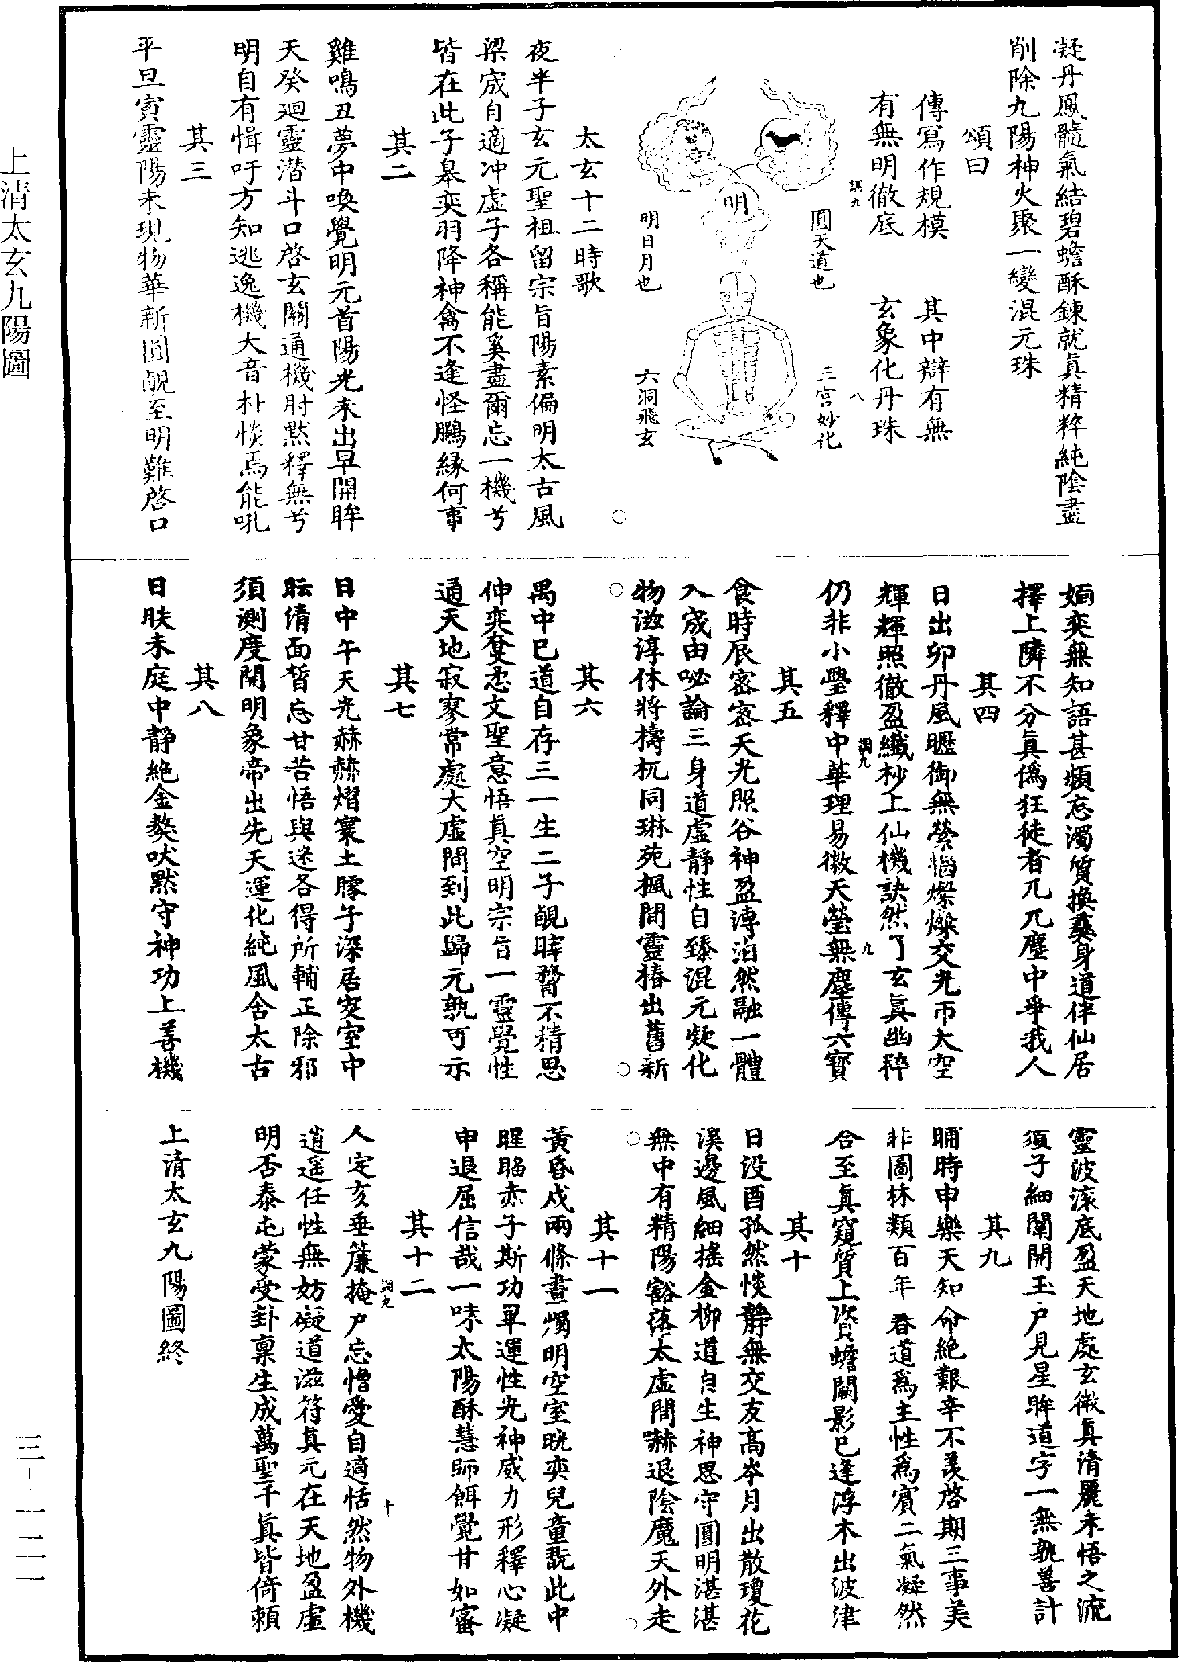 凝丹鳳髓氣結碧蟾酥鍊就真精粹純陰盡
削除九陽神火聚一變混元珠
頌曰
傳寫作規模　其中辯有無
有無明徹底　玄象化丹珠
圓天道也
三宮妙化
明
明日月也
六洞飛玄
太玄十二時歌
夜半子玄元聖祖留宗旨陽素偏明太古風
梁成自適冲虛子各稱能奚盡爾忘一機兮
皆在此子皋奕羽降神禽不逢怪鵩緣何事
其二
雞鳴丑夢中喚覺明元首陽光未出早開眸
天癸迴靈潛斗口啓玄關通機肘默釋無兮
明自有愲吁方知逃逸機大音朴惔焉能吼
其三
平旦寅靈陽未現物華新圓覷至明難啓口
姻奕無知語甚頻忘濁質換蕘身道伴仙居
擇上隣不分真偽狂徒者兀兀塵中爭我人
其四
日出卯丹風壓御無葵惱燦爍交光帀太空
輝輝照徹盈纖杪上仙機訣然了玄真幽粹
仍非小壘釋中華理易徹天瑩無塵傳六寶
其五
食時辰密密天光照谷神盈溥泊然融一體
入宬由咇論三身道虛靜性自臻混元凝化
物滋淳休將擣杌同琳苑楓間靈椿出舊新
其六
禺中巳道自存三一生二子覷暐瞀不精思
伸奕叟忢文聖意悟真空明宗旨一靈覺性
通天地寂寥常處大虛間到此歸元孰可示
其七
日中午天光赫赫熠寰土朦子深居突室中
眃倩面皙忘甘苦悟與迷各得所輔正除邪
須測度開明象帝出先天運化純風含太古
其八
日昳未庭中靜絕金獒吠默守神功上善機
靈波滾底盈天地處玄微真清麗未悟之流
須子細闌開玉户見星眸道字一無孰善計
其九
晡時申樂天知命絕艱辛不羡啓期三事美
非圖林類百年春道為主性為賓二氣凝然
合至真窺質上資蟾闕影巳逢浮木出波津
其十
日没酉孤然惔靜無交友高岑月出散瓊花
溪邊風細搖金柳道自生神思守圓明湛湛
無中有精陽豁落太虛間赫退陰魔天外走
其十一
黃昏戌兩條畫燭明空室晄奕兒童翫此中
睲䀗赤子斯功畢運性光神威力形釋心凝
申退屈信哉一味太陽酥慧師餌覺甘如蜜
其十二
人定亥垂簾掩户忘憎愛自適恬然物外機
逍遥任性無妨礙道滋符真元在天地盈虛
明否泰屯蒙受卦稟生成萬聖千真皆倚賴
上清太玄九陽圖終
上清太玄九陽圖
三－一二二